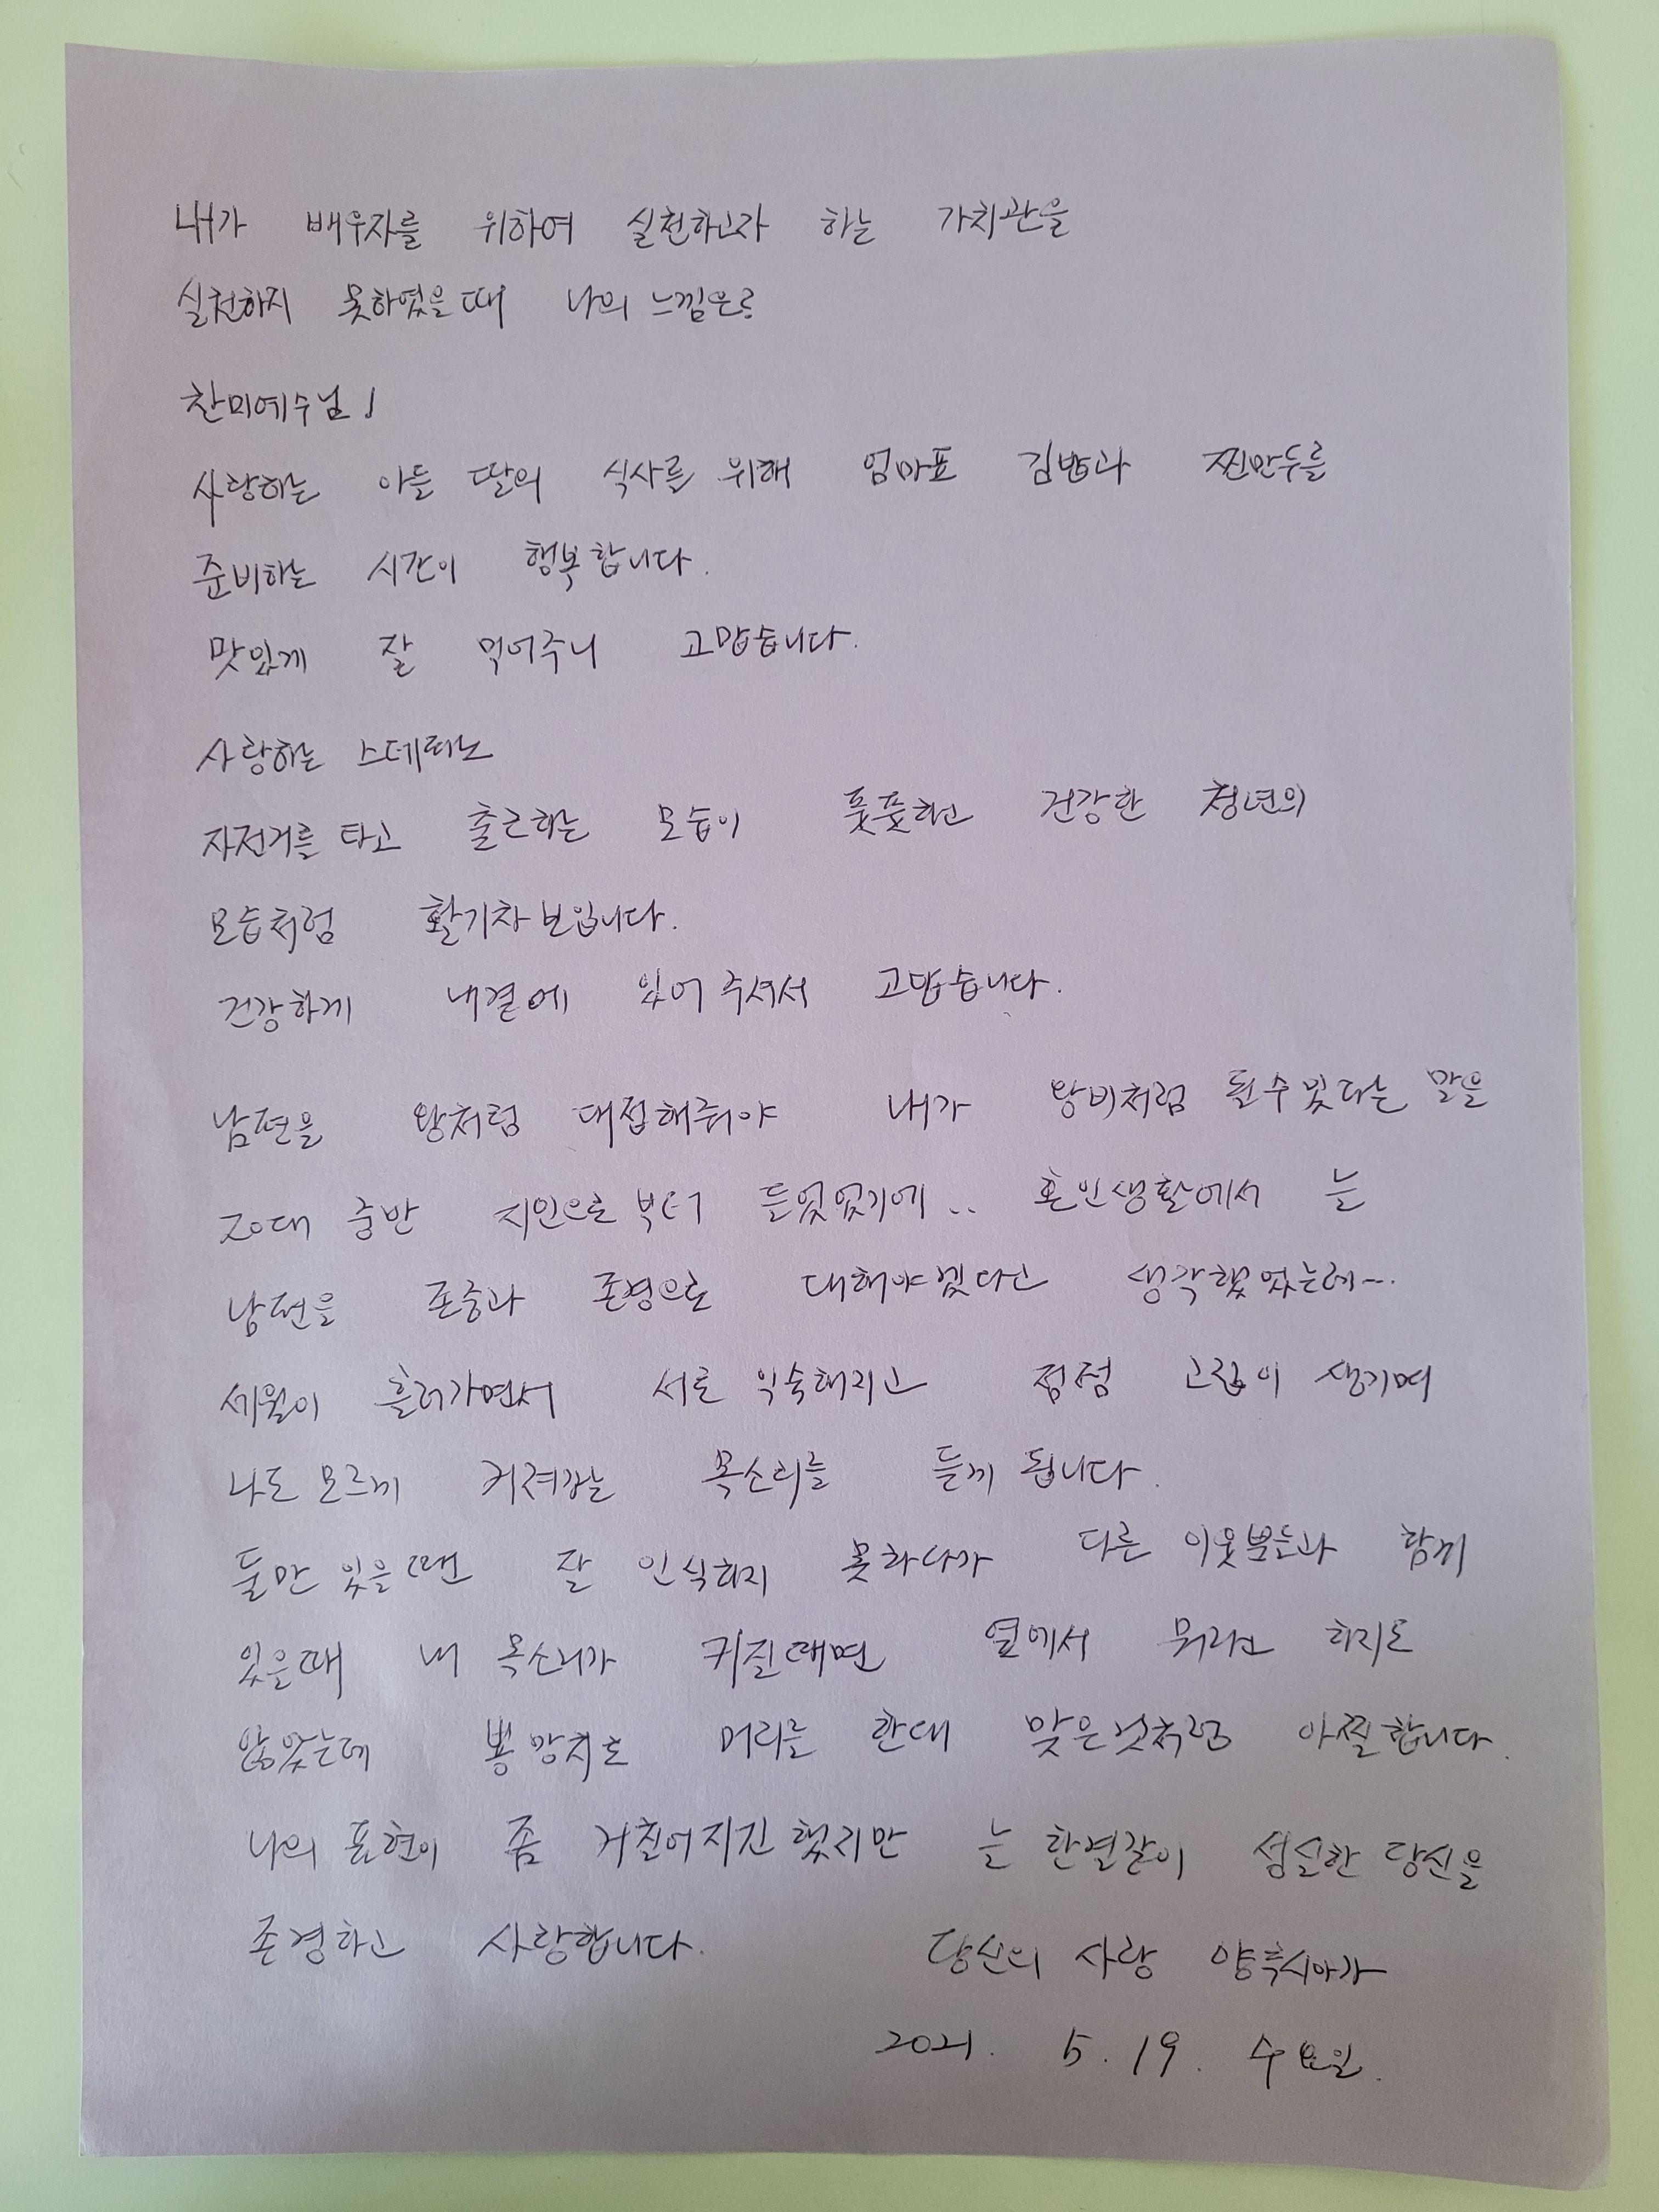 내가 배우자를 위하여 실천하고자 하는 가치관을
실천하지 못하였을때 나의 느낌은?
찬미예수님!
사랑하는 아들 딸의 식사를 위해 엄마표 김밥과 찐만두를
준비하는 시간이 행복합니다.
맛있게 잘 먹어주니 고맙습니다.
사랑하는 스테파노
자전거를 타고 출근하는 모습이 풋풋하고 건강한 청년의
모습처럼 활기차 보입니다.
건강하게 내곁에 있어 주셔서 고맙습니다.
남편을 왕처럼 대접해줘야 내가 왕비처럼 될수있다는 말을
20대 중반 지인으로 부터 들었었기에.. 혼인생활에서 늘
남편을 존중과 존경으로 대해야겠다고 생각했었는데~.
세월이 흘러가면서 서로 익숙해지고 점점 고집이 생기며
나도 모르게 커져가는 목소리를 듣게 됩니다.
둘만 있을땐 잘 인식하지 못하다가 다른 이웃분들과 함께
있을때 내 목소리가 커질때면 옆에서 뭐라고 하지도
않았는데 뿅망치로 머리를 한대 맞은것처럼 아찔합니다.
나의 표현이 좀 거칠어지긴 했지만 늘 한결같이 성실한 당신을
존경하고 사랑합니다. 당신의 사랑 가
2021. 5. 19. 수요일.